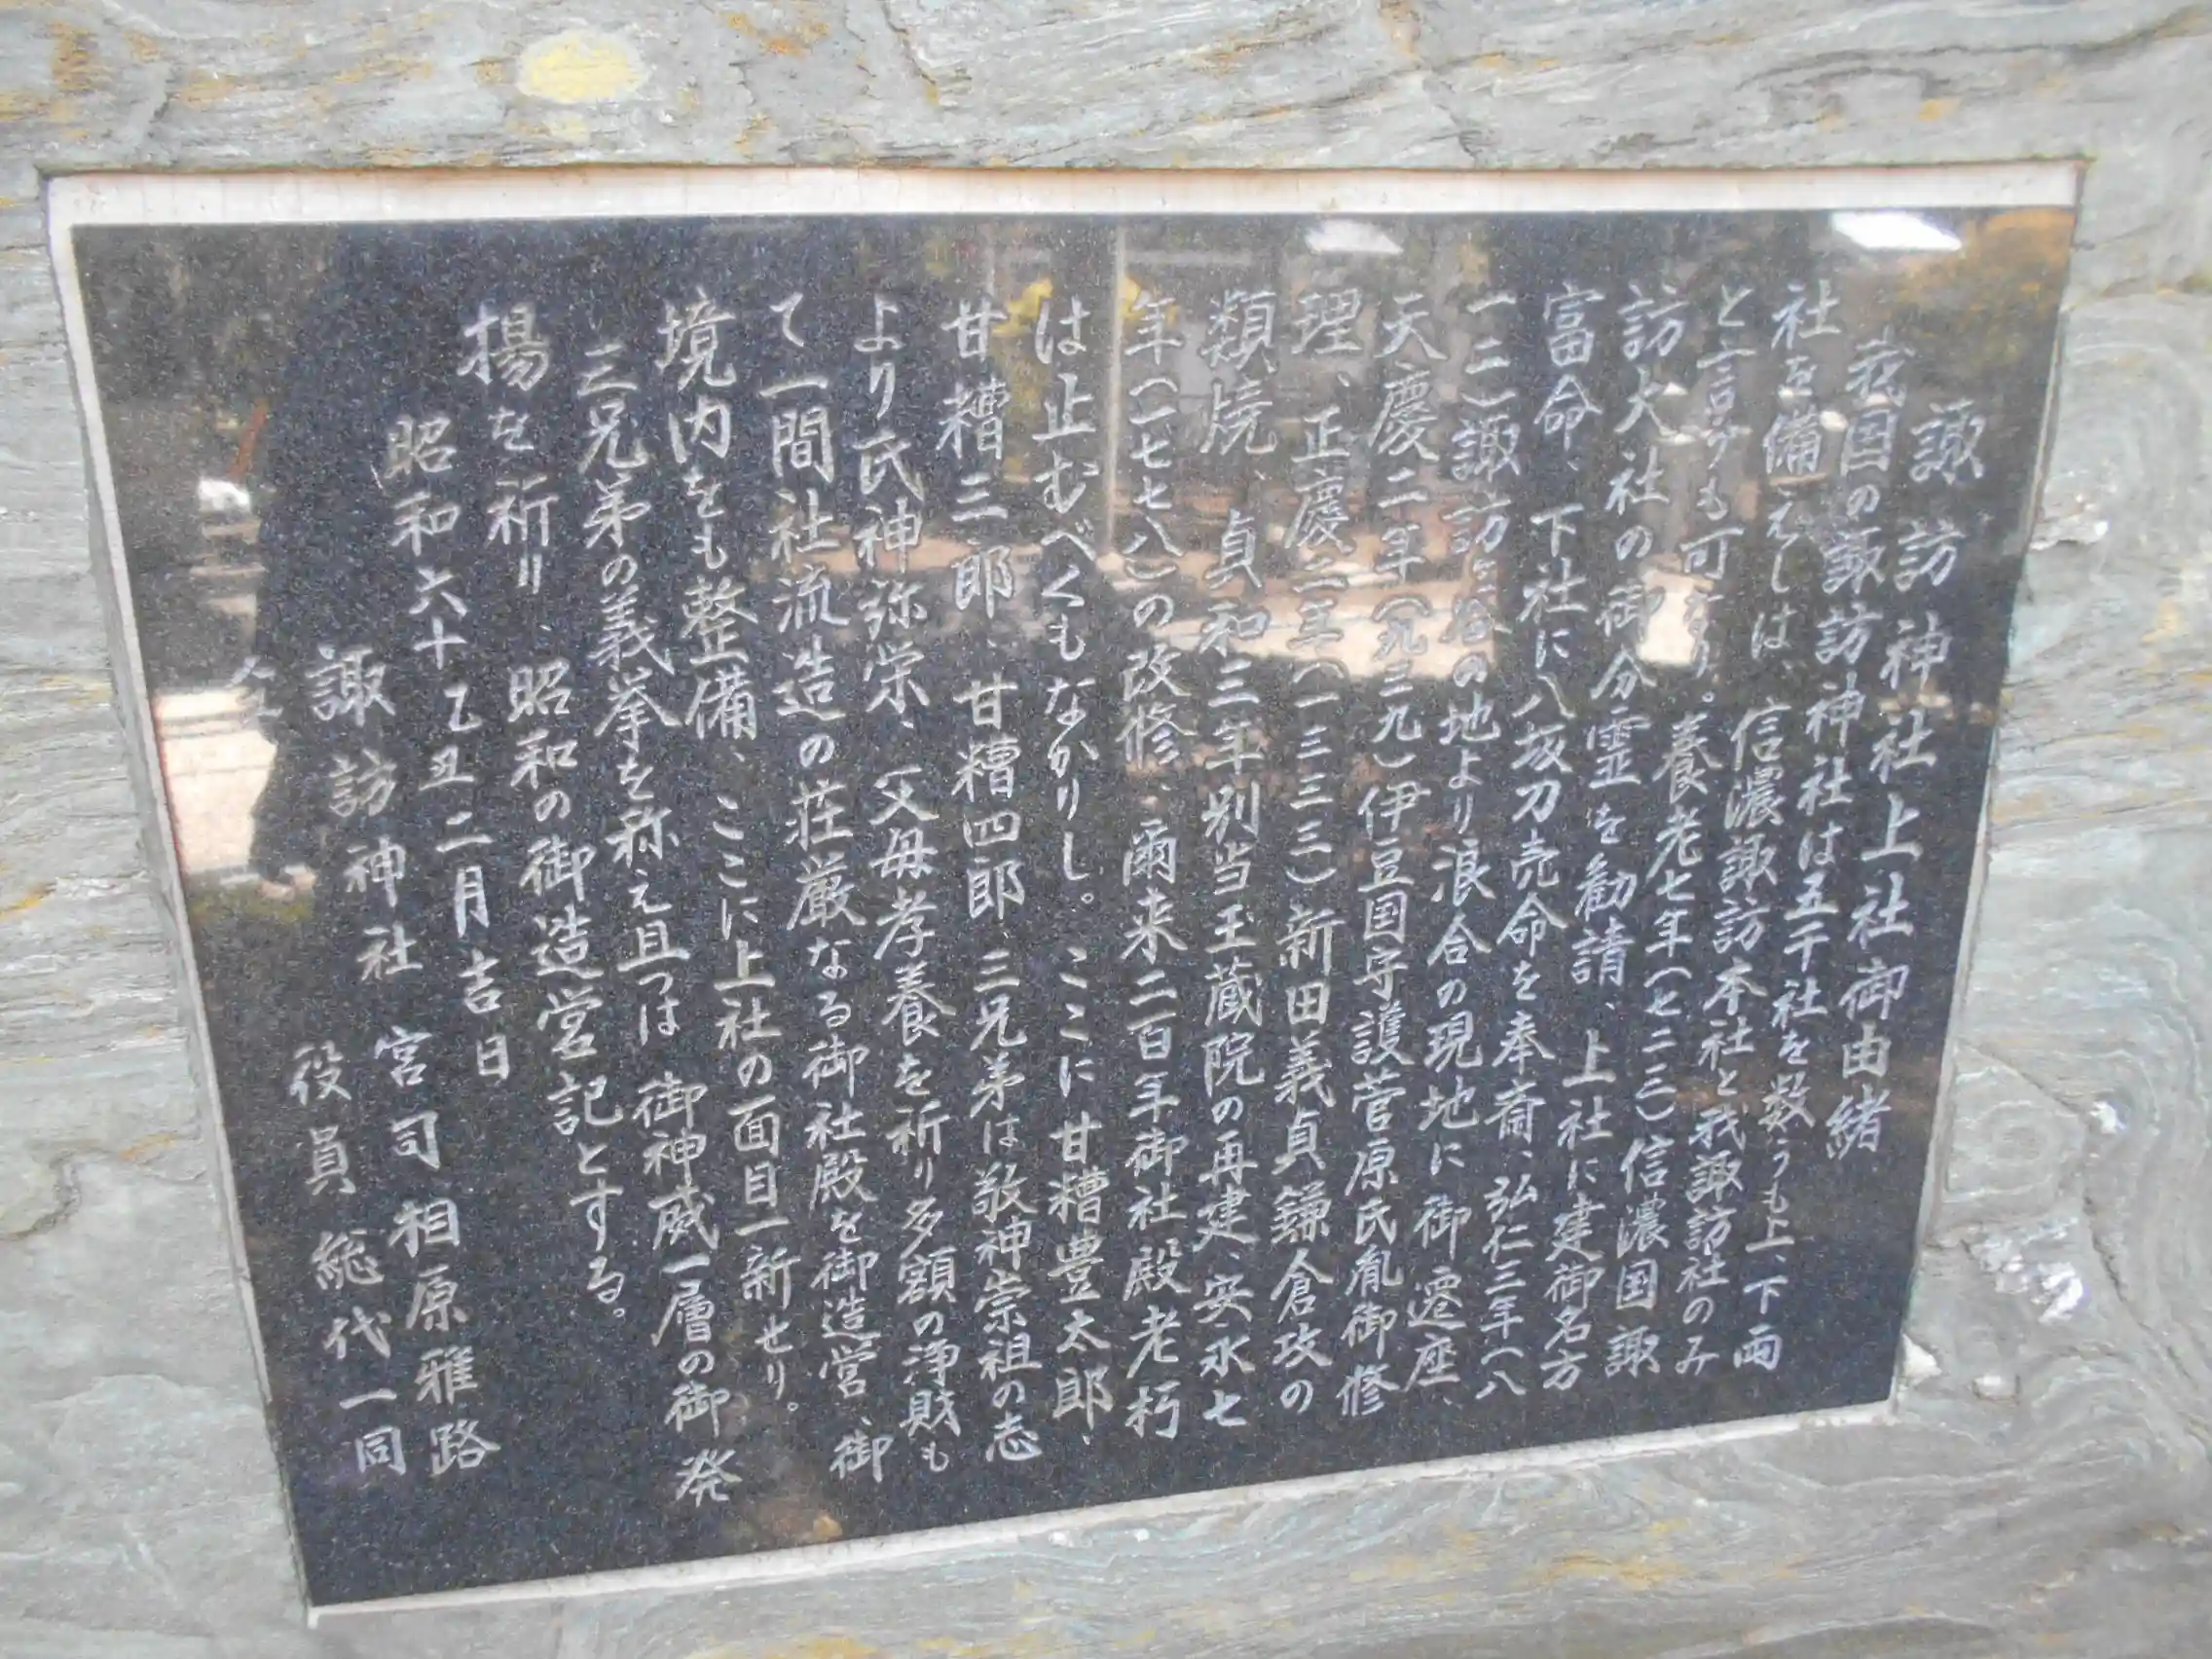 諏訪神社上社御由緒
我国の諏訪神社は五千社を数うも上、下両
社を備えしは、信濃諏訪本社と我諏訪社のみ
と言うも可なり。養老七年(七二三)信濃国諏
訪大社の御分霊を勧請、上社に建御名方
富命、下社に八坂刀売命を奉斎、弘仁三年(八
一二)諏訪ヶ谷の地より浪合の現地に御遷座、
天慶二年(九三九)伊豆国守護菅原氏胤御修
理、正慶二年(一三三三)新田義貞鎌倉攻の
類焼、貞和三年別当玉蔵院の再建、安永七
年(一七七八)の改修、爾来二百年御社殿老朽
は止むべくもなかりし。ここに甘糟豊太郎、
甘糟三郎、甘糟四郎三兄弟は敬神崇祖の志
より氏神弥栄、父母孝養を祈り多額の浄財も
て一間社流造の荘厳なる御社殿を御造営、御
境内をも整備、ここに上社の面目一新せり。
三兄弟の義挙を称え且つは御神威一層の御発
揚を祈り、昭和の御造営記とする。
昭和六十乙丑二月吉日
諏訪神社 宮司 相原雅路
役員総代一同